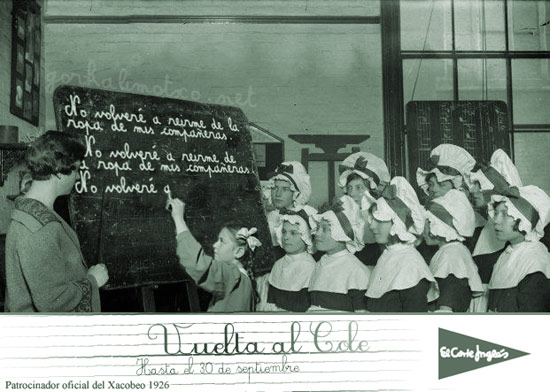 gorkalimotxo.net
No volveré a reirme de la
ropa de mis compañeras.
No volveré a reirme de
ropa de mis compañeras
No volveré q
Vuelta al Cole
Hasta el 30 de septiembre
El Corte Inglés
Patrocinador oficial del Xacobeo 1926